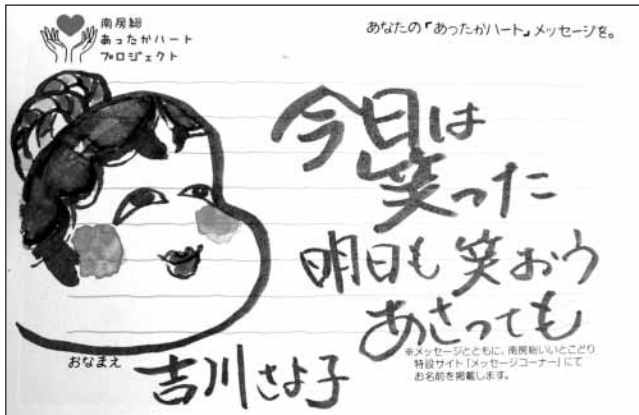 南房総
あったかハート
プロジェクト
あなたの「あったかハート」メッセージを。
今日は
笑った
明日も笑おう
あさっても
おなまえ
吉川さよ子
※メッセージとともに、南房総いいとこどり
特設サイト「メッセージコーナー」にて
お名前を掲載します。